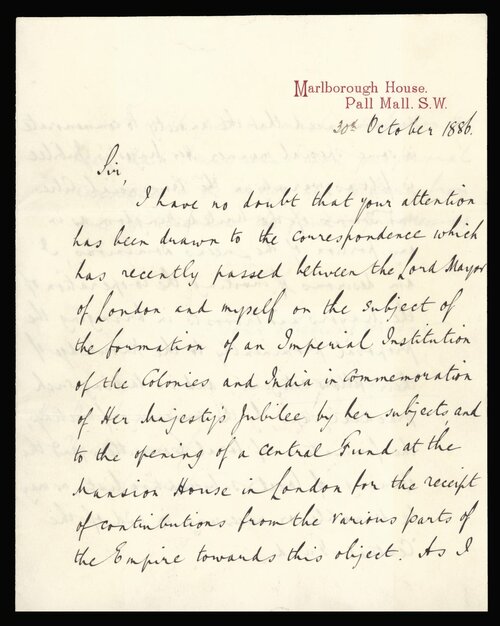 Marlborough House.
Pall Mall. S.W.
30th October 1886.
Sir,
I have no doubt that your attention
has been drawn to the correspondence which
has recently passed between the Lord Mayor
of London and myself on the subject of
the formation of an Imperial Institution
of the Colonies and India, in commemoration
of Her Majesty's Jubilee by her subjects, and
to the opening of a central Fund at the
Mansion House in London for the receipt
of contributions from the various parts of
the Empire towards this object. As I